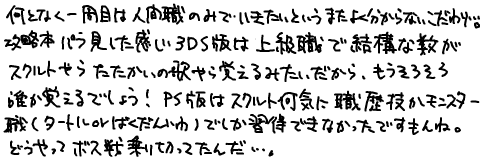 何となく一周目は人間職のみでいきたいというまたよく分からないこだわりが。
攻略本パラ見した感じ3DS版は上級職で結構な数が
スクルトやらたたかいの歌やら覚えるみたいだから、もうそろそろ
誰か覚えるでしょう！PS版はスクルト何気に職歴技かモンスター
職(タートルorばくだんいわ)でしか習得できなかったですもんね。
どうやってボス戦乗り切ってたんだ…。